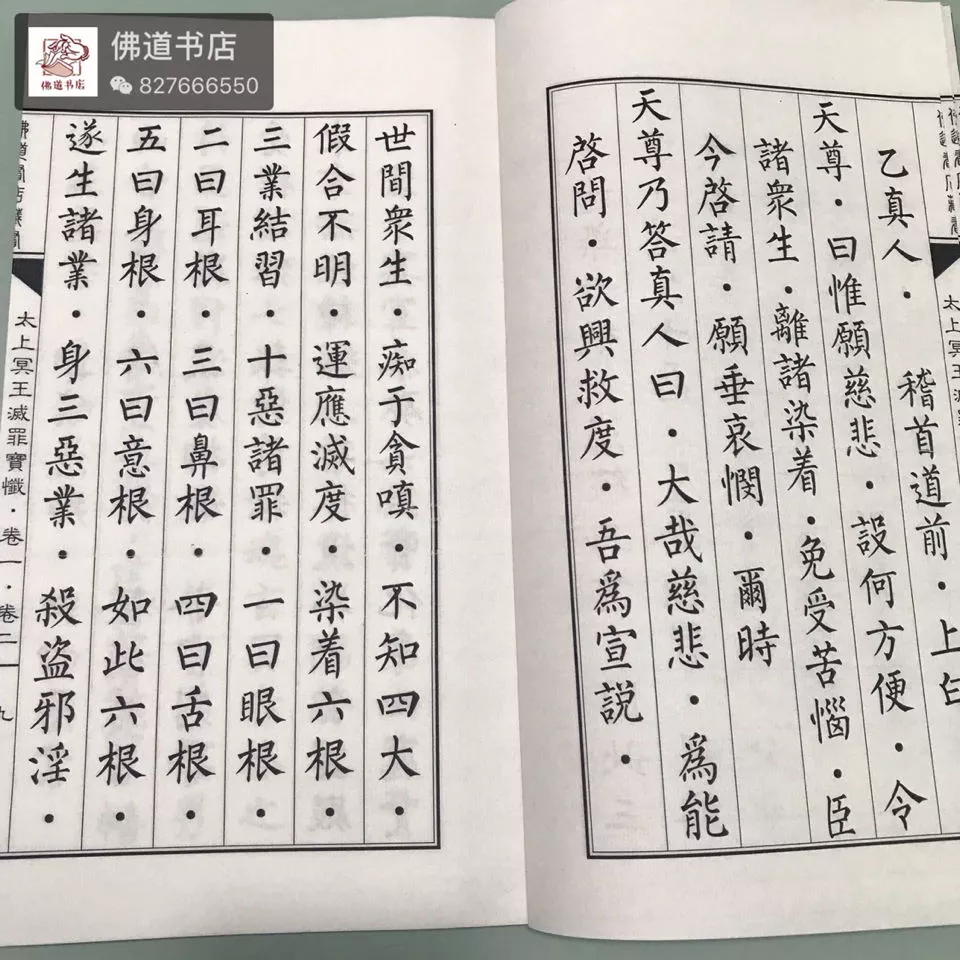 佛道书店
佛道书店
827666550
乙真人．稽首道前．上白
天尊．曰惟願慈悲．設何方便．令
諸衆生．離諸染着．免受苦惱．臣
今啓請．願垂哀憫．爾時
天尊乃答真人曰．大哉慈悲．爲能
啓問．欲興救度．吾爲宣說．
世間衆生．痴于貪嗔．不知四大．
假合不明．運應滅度．染着六根．
三業結習．十惡諸罪．一曰眼根．
二曰耳根．三曰鼻根．四曰舌根．
五曰身根．六曰意根．如此六根．
遂生諸業．身三惡業．殺盜邪淫．
太上冥王滅罪寶懺．卷一．卷二
九
太上冥王滅